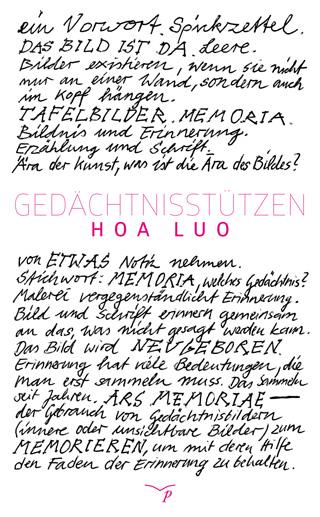 ein Vorwort. Spickzettel.
DAS BILD IST DA. Leere.
Bilder existieren, wenn sie nicht
nur an einer Wand, sondern auch
im Kopf hängen.
TAFELBILDER. MEMORIA.
Bildnis und Erinnerung.
Erzählung und Schrift.
Ära der Kunst, was ist die Ära des Bildes?
GEDÄCHTNISSTÜTZEN
HOA LUO
von ETWAS Notiz nehmen.
Stichwort: MEMORIA, welches Gedächtnis?
Malerei vergegenständlicht Erinnerung.
Bild und Schrift erinnern gemeinsam
an das, was nicht gesagt werden kann.
Das Bild wird NEUGEBOREN.
Erinnerung hat viele Bedeutungen, die
man erst sammeln muss. Das Sammeln
seit Jahren. ARS MEMORIAE —
der Gebrauch von Gedächtnisbildern
(innere oder unsichtbare Bilder) zum
MEMORIEREN, um mit deren Hilfe
den Faden der Erinnerung zu behalten.
p